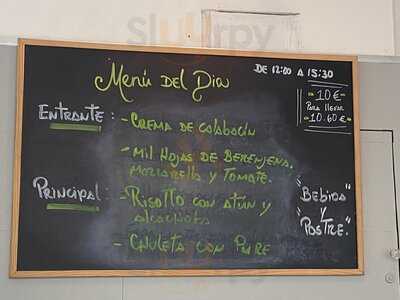 Slurrpy
Menú Del Dia
DE 12:00 A 15:30
10€
Para llevar
10.60€
ENTRANTE:
- CREMA DE CALABACIN
- MIL HOJAS DE BERENJENA.
MOZZARELLA Y TOMATE.
PRINCIPAL:
- RISOTTO CON ATÚN Y
alcachofa
- CHULETA CON PURE
"BEBIDA"
Y
"POSTRE."